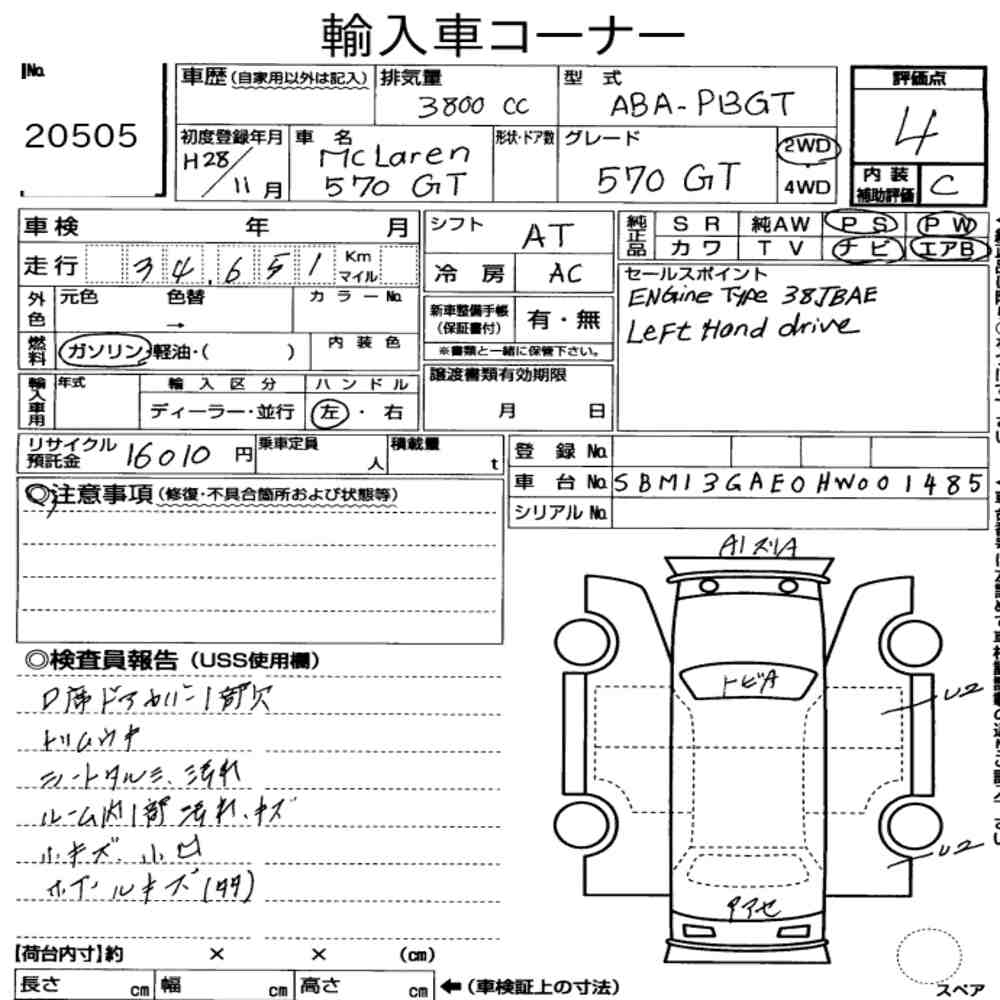 輸入車コーナー
No.
20505
車歴(自家用以外は記入)
排気量
3800 cc
型 式
ABA-P13GT
評価点
4
初度登録年月
H28/11月
車 名
McLaren
570 GT
形状・ドア数
グレード
570 GT
2WD
4WD
内装
補助評価
C
車検 年 月
シフト
AT
純正品
SR 純AW PS PW
カワ TV ナビ エアB
走行 34,651 Km
マイル
冷房
AC
セールスポイント
ENGine Type 38JBAE
Left Hand drive
外色
元色 色替
→
カラーNo.
新車整備手帳
(保証書付)
有・無
※書類と一緒に保管下さい。
燃料
ガソリン・軽油・( )
内装色
輸入車用
年式
輸入区分
ディーラー・並行
ハンドル
左・右
譲渡書類有効期限
月 日
リサイクル
預託金
16010 円
乗車定員
人
積載量
t
登録No.
車台No. SBM13GAE0HW001485
シリアルNo.
◎注意事項(修復・不具合箇所および状態等)
A1 ズリA
◎検査員報告(USS使用欄)
トビA
U2
トリムウキ
ルーム内1部汚れ、キズ
U2
小キズ、小凹
【荷台内寸】約 × × (cm)
長さ cm 幅 cm 高さ cm ←(車検証上の寸法)
スペア